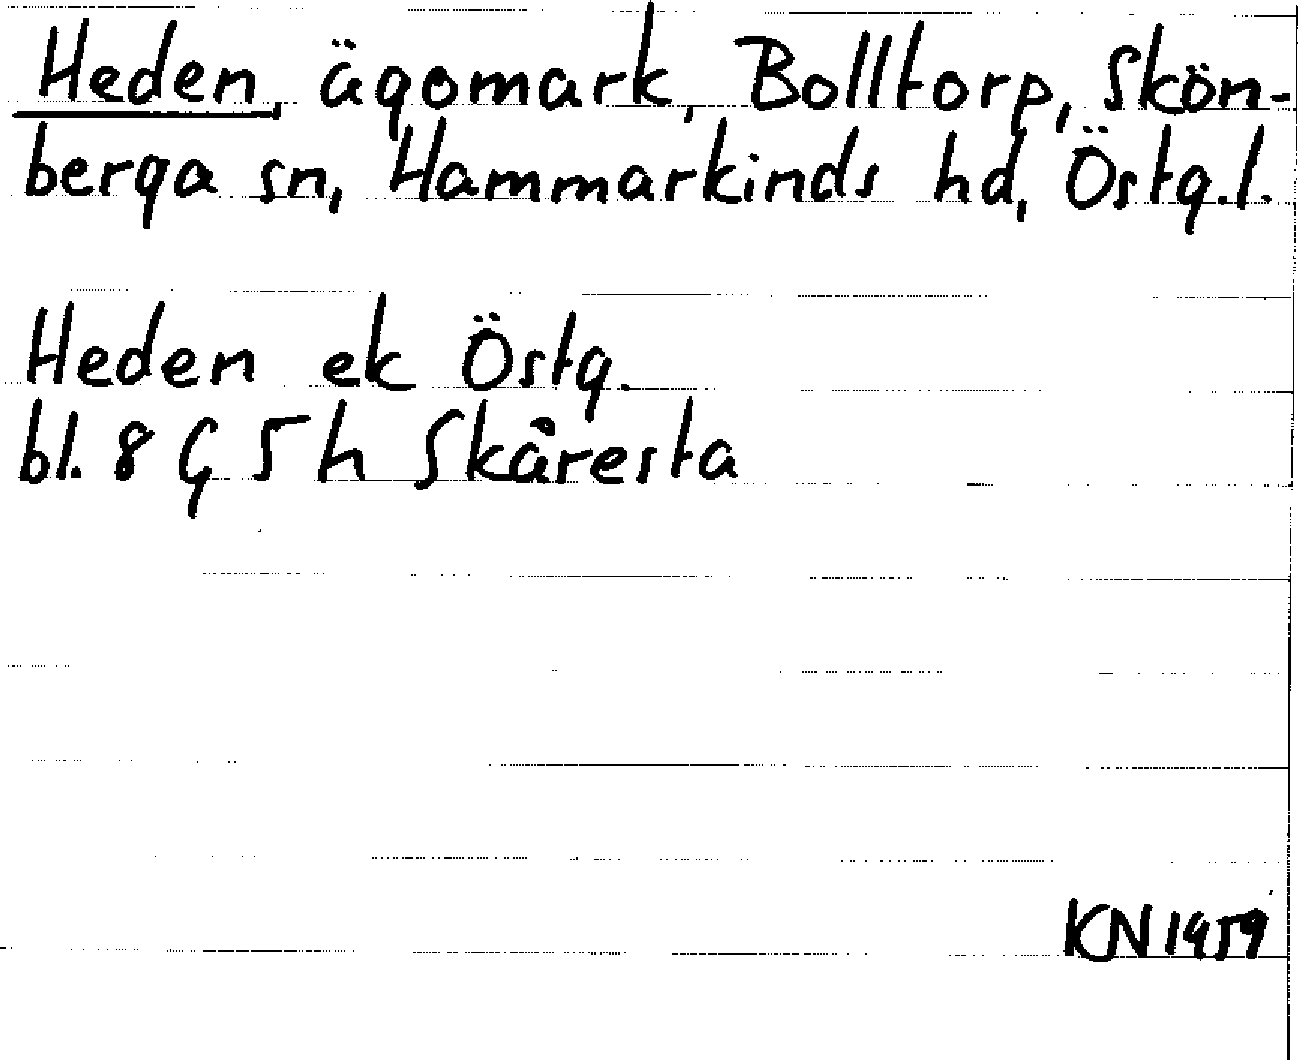 Heden, ägomark, Bolltorp, Skön-
berga sn, Hammarkinds hd, Östg.l.
Heden ek Östg.
bl. 8 G 5 h Skåresta
KN 1959